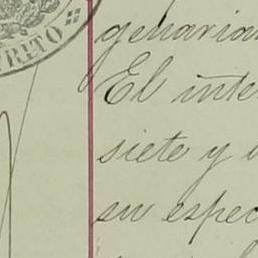 RITO
genaria
El inte
siete y
su espec